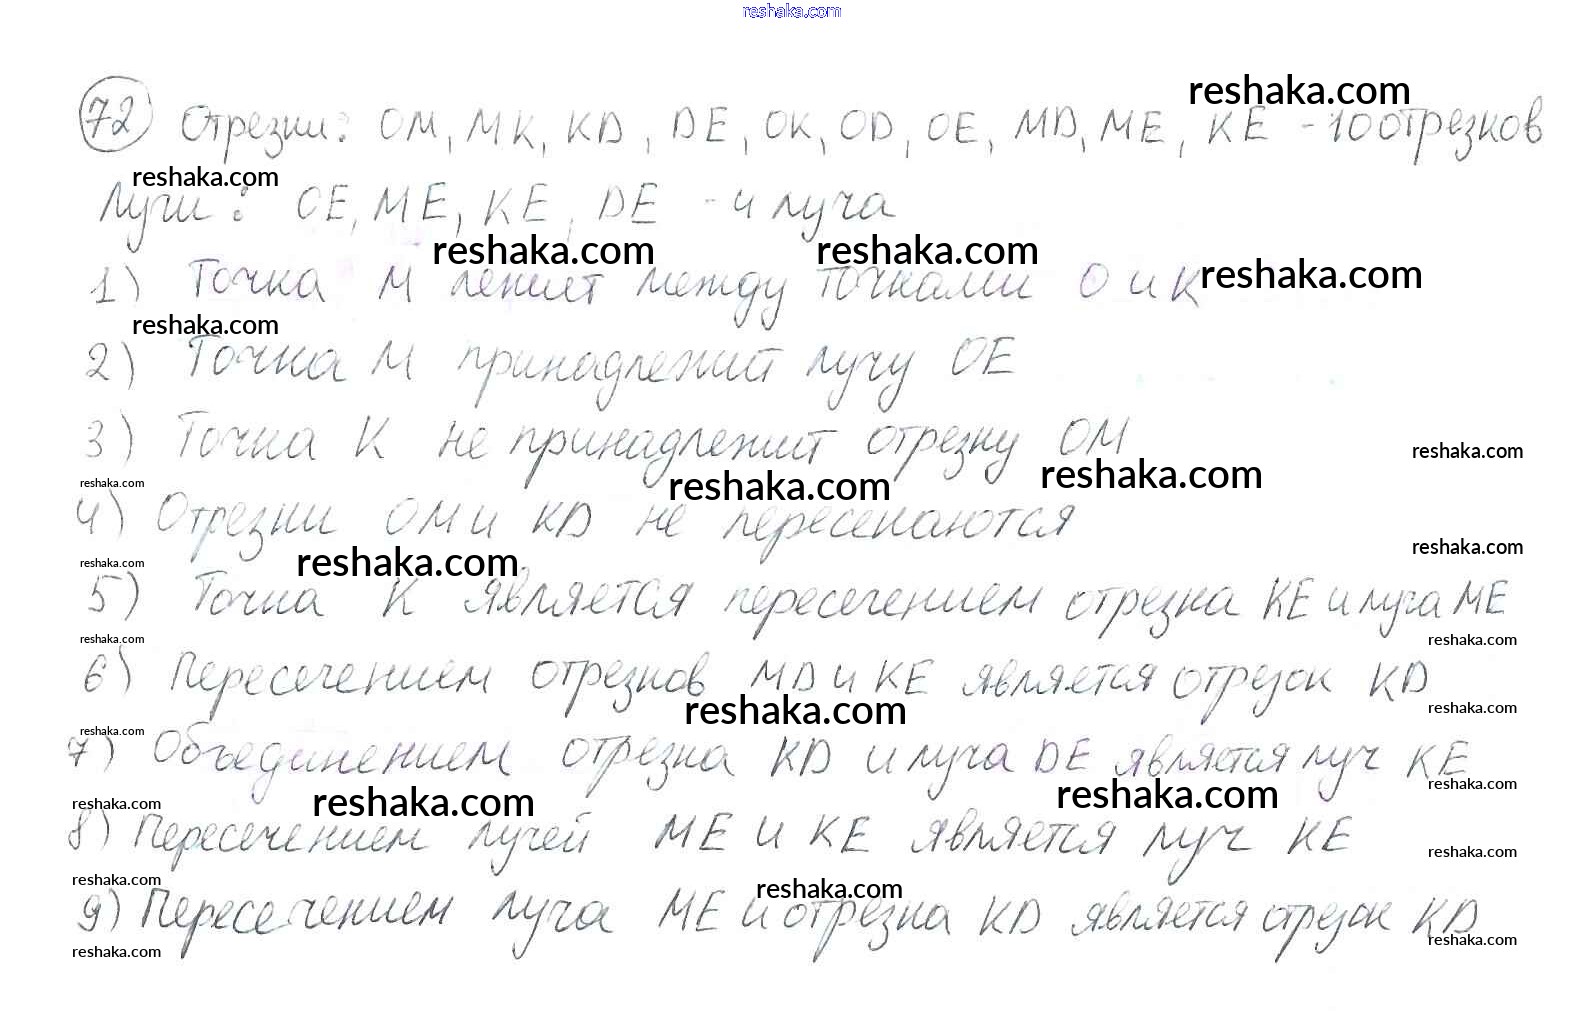 reshaka.com
reshaka.com
72 Отрезки: OM, MK, KD, DE, OK, OD, OE, MD, ME, KE - 10 отрезков
reshaka.com
Лучи: OE, ME, KE, DE - 4 луча
reshaka.com reshaka.com
1) Точка M лежит между точками O и K reshaka.com
reshaka.com
2) Точка M принадлежит лучу OE
3) Точка K не принадлежит отрезку OM
reshaka.com
reshaka.com reshaka.com reshaka.com
4) Отрезки OM и KD не пересекаются
reshaka.com
reshaka.com reshaka.com
5) Точка K является пересечением отрезка KE и луча ME
reshaka.com reshaka.com
6) Пересечением отрезков MD и KE является отрезок KD
reshaka.com reshaka.com
reshaka.com
7) Объединением отрезка KD и луча DE является луч KE
reshaka.com
reshaka.com reshaka.com reshaka.com
8) Пересечением лучей ME и KE является луч KE
reshaka.com
reshaka.com reshaka.com
9) Пересечением луча ME и отрезка KD является отрезок KD
reshaka.com
reshaka.com